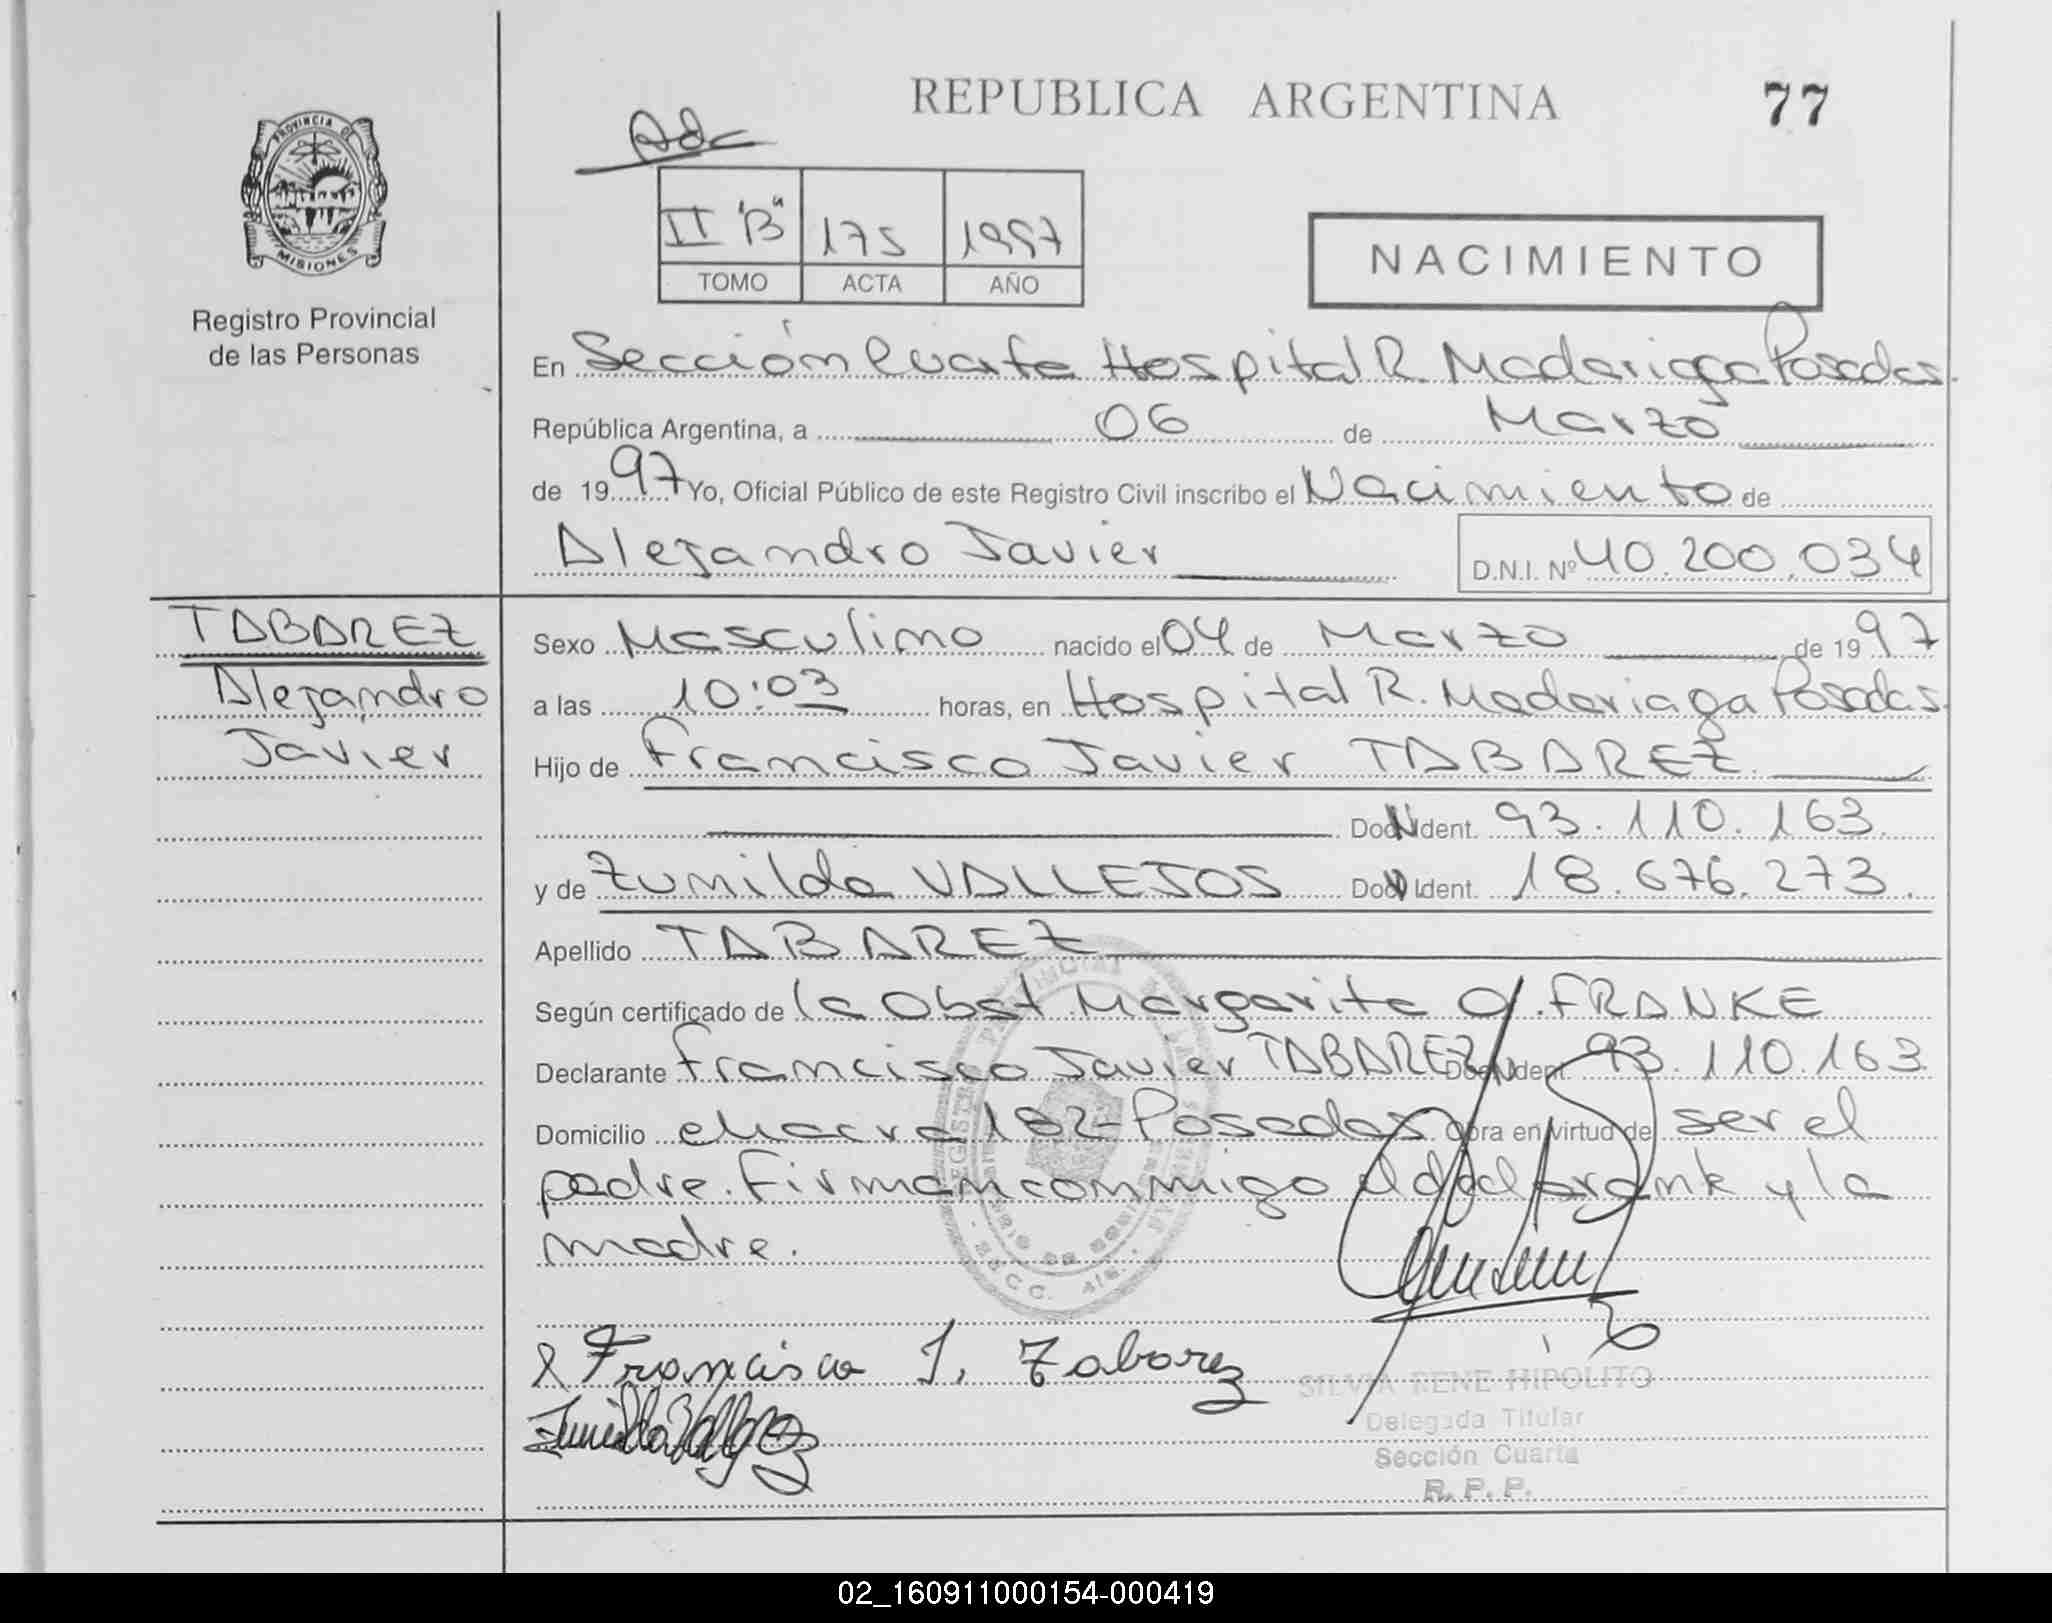 REPUBLICA ARGENTINA
77
PROVINCIA DE
MISIONES
Registro Provincial
de las Personas
II "B" 175 1997
TOMO ACTA AÑO
NACIMIENTO
En Sección Cuarta Hospital R. Madariaga Posadas.
República Argentina, a 06 de Marzo
de 1997 Yo, Oficial Público de este Registro Civil inscribo el Nacimiento de
Alejandro Javier
D.N.I. Nº 40.200.034
TABAREZ
Alejandro
Javier
Sexo Masculino nacido el 04 de Marzo de 1997
a las 10:03 horas, en Hospital R. Madariaga Posadas.
Hijo de Francisco Javier TABAREZ
Doc. Ident. 93.110.163.
y de Zunilda VALLEJOS Doc. Ident. 18.676.273.
Apellido TABAREZ
Según certificado de la Obst Margarita O. FRANKE
Declarante Francisco Javier TABAREZ Doc. Ident. 93.110.163
Domicilio chacra 182-Posadas Obra en virtud de ser el
padre. Firman conmigo el declarante y la
madre.
Francisco J. Tabarez
SILVIA RENE HIPOLITO
Delegada Titular
Sección Cuarta
R. P. P.
02_160911000154-000419